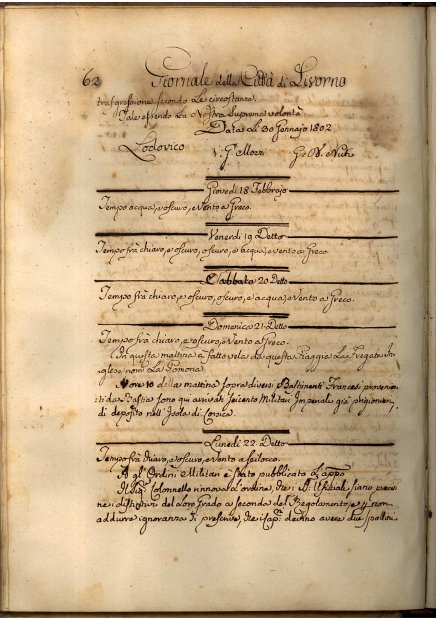 62 Giornale della Città di Livorno
trasgressione secondo Le circostanze.
Tale essendo La Nostra Suprema volontà
Data Li 30 Gennajo 1802
Lodovico V. G. Mozzi
Giovedi 18 Febbrajo
Tempo acqua, e oscuro, e Vento a Greco.
Venerdi 19 Detto
Tempo frà chiaro, e oscuro, oscuro, e acqua, e vento a Greco
Sabbato 20 Detto
Tempo frà chiaro, e oscuro, oscuro, e acqua, e Vento a Greco.
Domenica 21 Detto
Tempo frà chiaro, e oscuro, e Vento a Greco.
In questa mattina à fatto vela da questa Raggia La Fregata In
glese nom. La Pomona
Nove to della mattina sopra diversi Bastimenti Francesi provenien
ti da Bastia sono qui arrivati seicento Militari Imperiali già prigionieri
di deposito nell' Isola di Corsica.
Lunedi 22 Detto
Tempo frà chiaro, e oscuro, e Vento a Scilocco.
A gl' Ordini Militari è stato pubblicato q.to appo
Il Sig. Colonnello rinnova l'ordine, che i SS. Uffiziali siano preci
ne i distintivi del Loro Grado a seconda del Regolamento, e p. non
addurre ignoranza si prescrive, che i Capi. devino avere due spalline